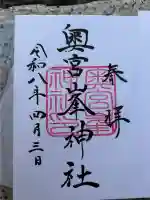 奉拝
奥宮峯神社
令和八年四月三日